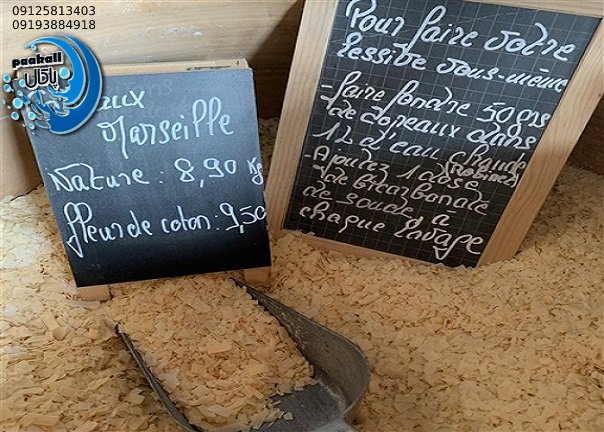 09125813403
09193884918
paakall
پاکال
aux
Marseille
Nature : 8,90 Kg
fleur de coton : 9,50
Pour faire votre
lessive vous-même
- faire fondre 50 grs
de copeaux dans
1L d'eau chaude
- Ajoutez 1 dose
de bicarbonate
de soude à
chaque lavage